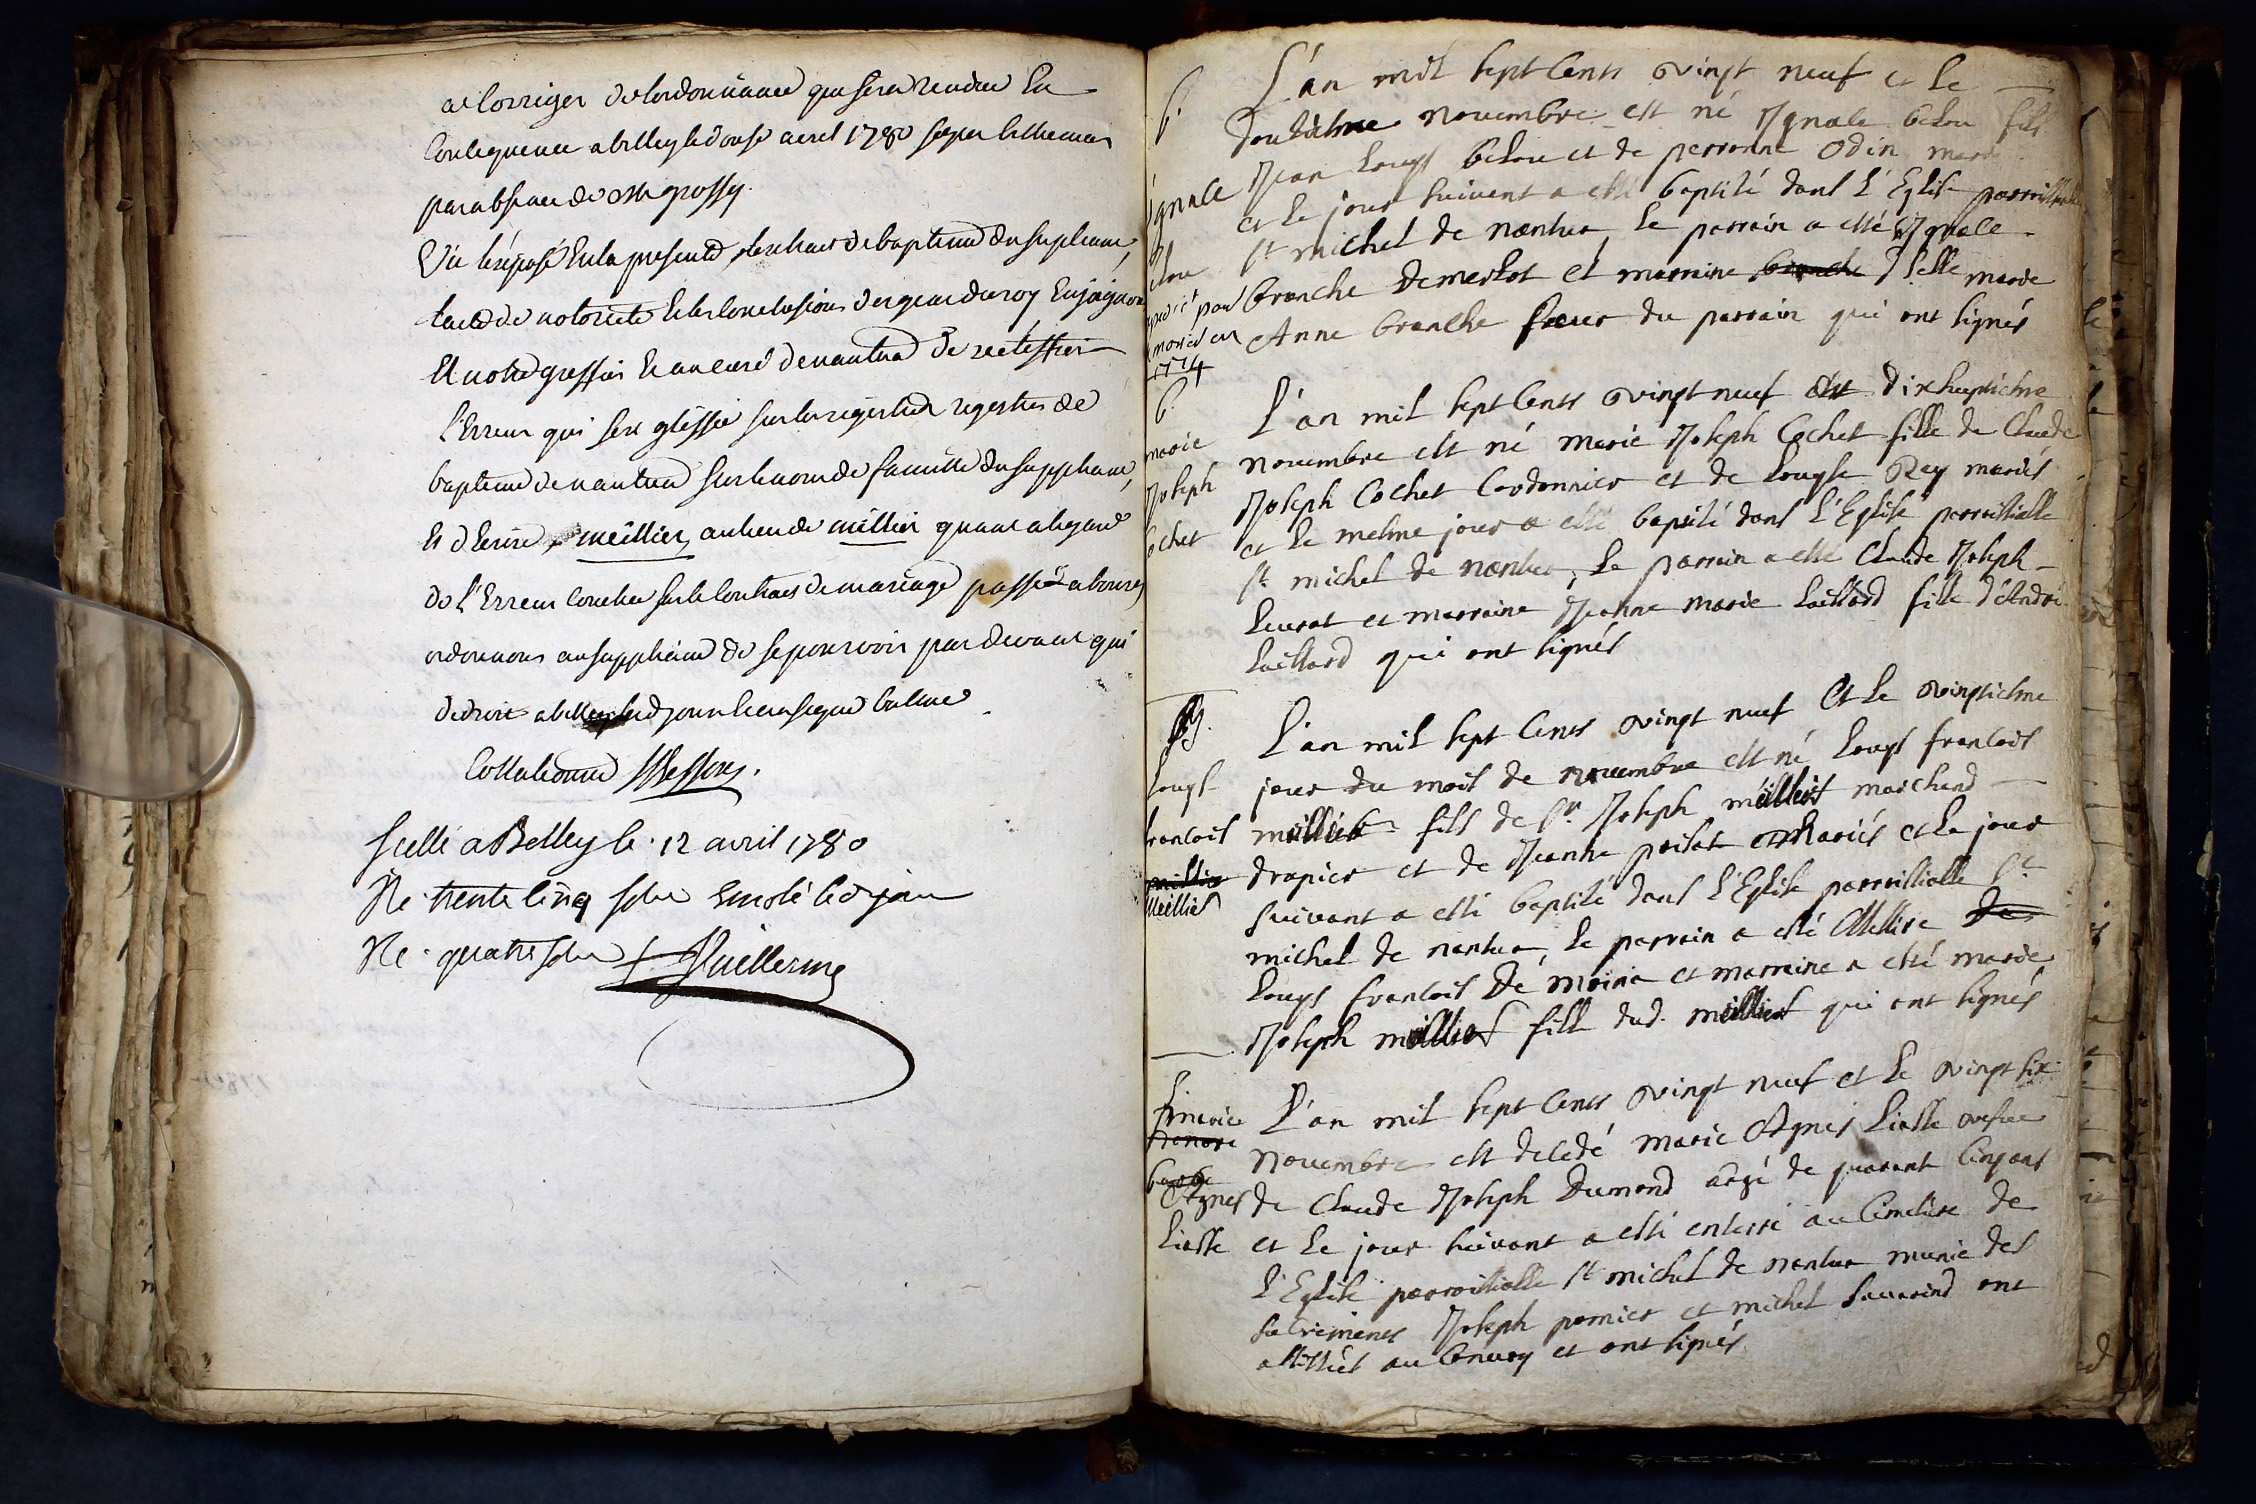 de lordonnance que sera rendue En
Consequence a belley le douse avril 1780 signé
par absence de Mr grossy.
Vu l'exposé En la presente, l'extrait de bapteme du supliant,
lacte de notorieté Et les Conclusions des gens du roy Enjoignons
Et notre greffier Et au curé de nantua de rectiffier
l'Erreur qui sest glissée sur les registres de
bapteme de nantua sur le nom de famille du suppliant,
Et d'Ecrire meillier, au lieu de millier quant a legard
de l'Erreur couchée sur le Contract de mariage passé a bourg
ordonnons au suppliant de se pourvoir par devant qui
de droit a belley led jour signé balme
Collationné
Scellé a Belley le 12 avril 1780
Re trente cinq sols led jour
Re quatre sols Guillerme
b.
Ignace
belou
mort en
1774
L'an mil sept Cents vingt neuf et le
douzielme novembre est né Ignace belou fils
Jean Louys belou et de perronne Odin mariés
et le jour suivent a esté baptisé dans l'Eglise parroissialle
St michel de nantua, le parrain a esté Ignace
branche Demerlot et marraine branche Dlle marie
Anne branche soeur du parrain qui ont signés
b.
marie
Joseph
Cochet
L'an mil sept Cents vingt neuf et dixheuptielme
novembre est né marie Joseph Cochet fille de Claude
Joseph Cochet Cordonnier et de Louyse Rey mariés
et le mesme jour a esté baptisé dans l'Eglise parroissialle
St michel de nantua, le parrain a esté Claude Joseph
Leurat et marraine Jeanne marie Laillard fille d'André
Laillard qui ont signés
Louys
francois
millier
Meillier
L'an mil sept Cents vingt neuf Et le vingtielme
jour du mois de novembre est né Louys francois
meillier fils de Sr Joseph meillier marchand
drapier et de Jeanne poisat mariés et le jour
suivant a esté baptisé dans l'Eglise parroissialle St
michel de nantua, le parrain a esté Messire De
Louys francois De moiria et marraine a esté marie
Joseph meillier fille dud. meillier qui ont signés
Agnes
Liasse
L'an mil sept Cents vingt neuf et le vingt six
novembre est decedé marie Agnes Liasse vefve
de Claude Joseph Dumond aagé de quarant Cinq ans
et le jour suivant a esté enterré au Cimetiere de
l'Eglise parroissialle St michel de nantua munie des
sacrements Joseph pernier et michel Savarind ont
assistés au Convoy et ont signés